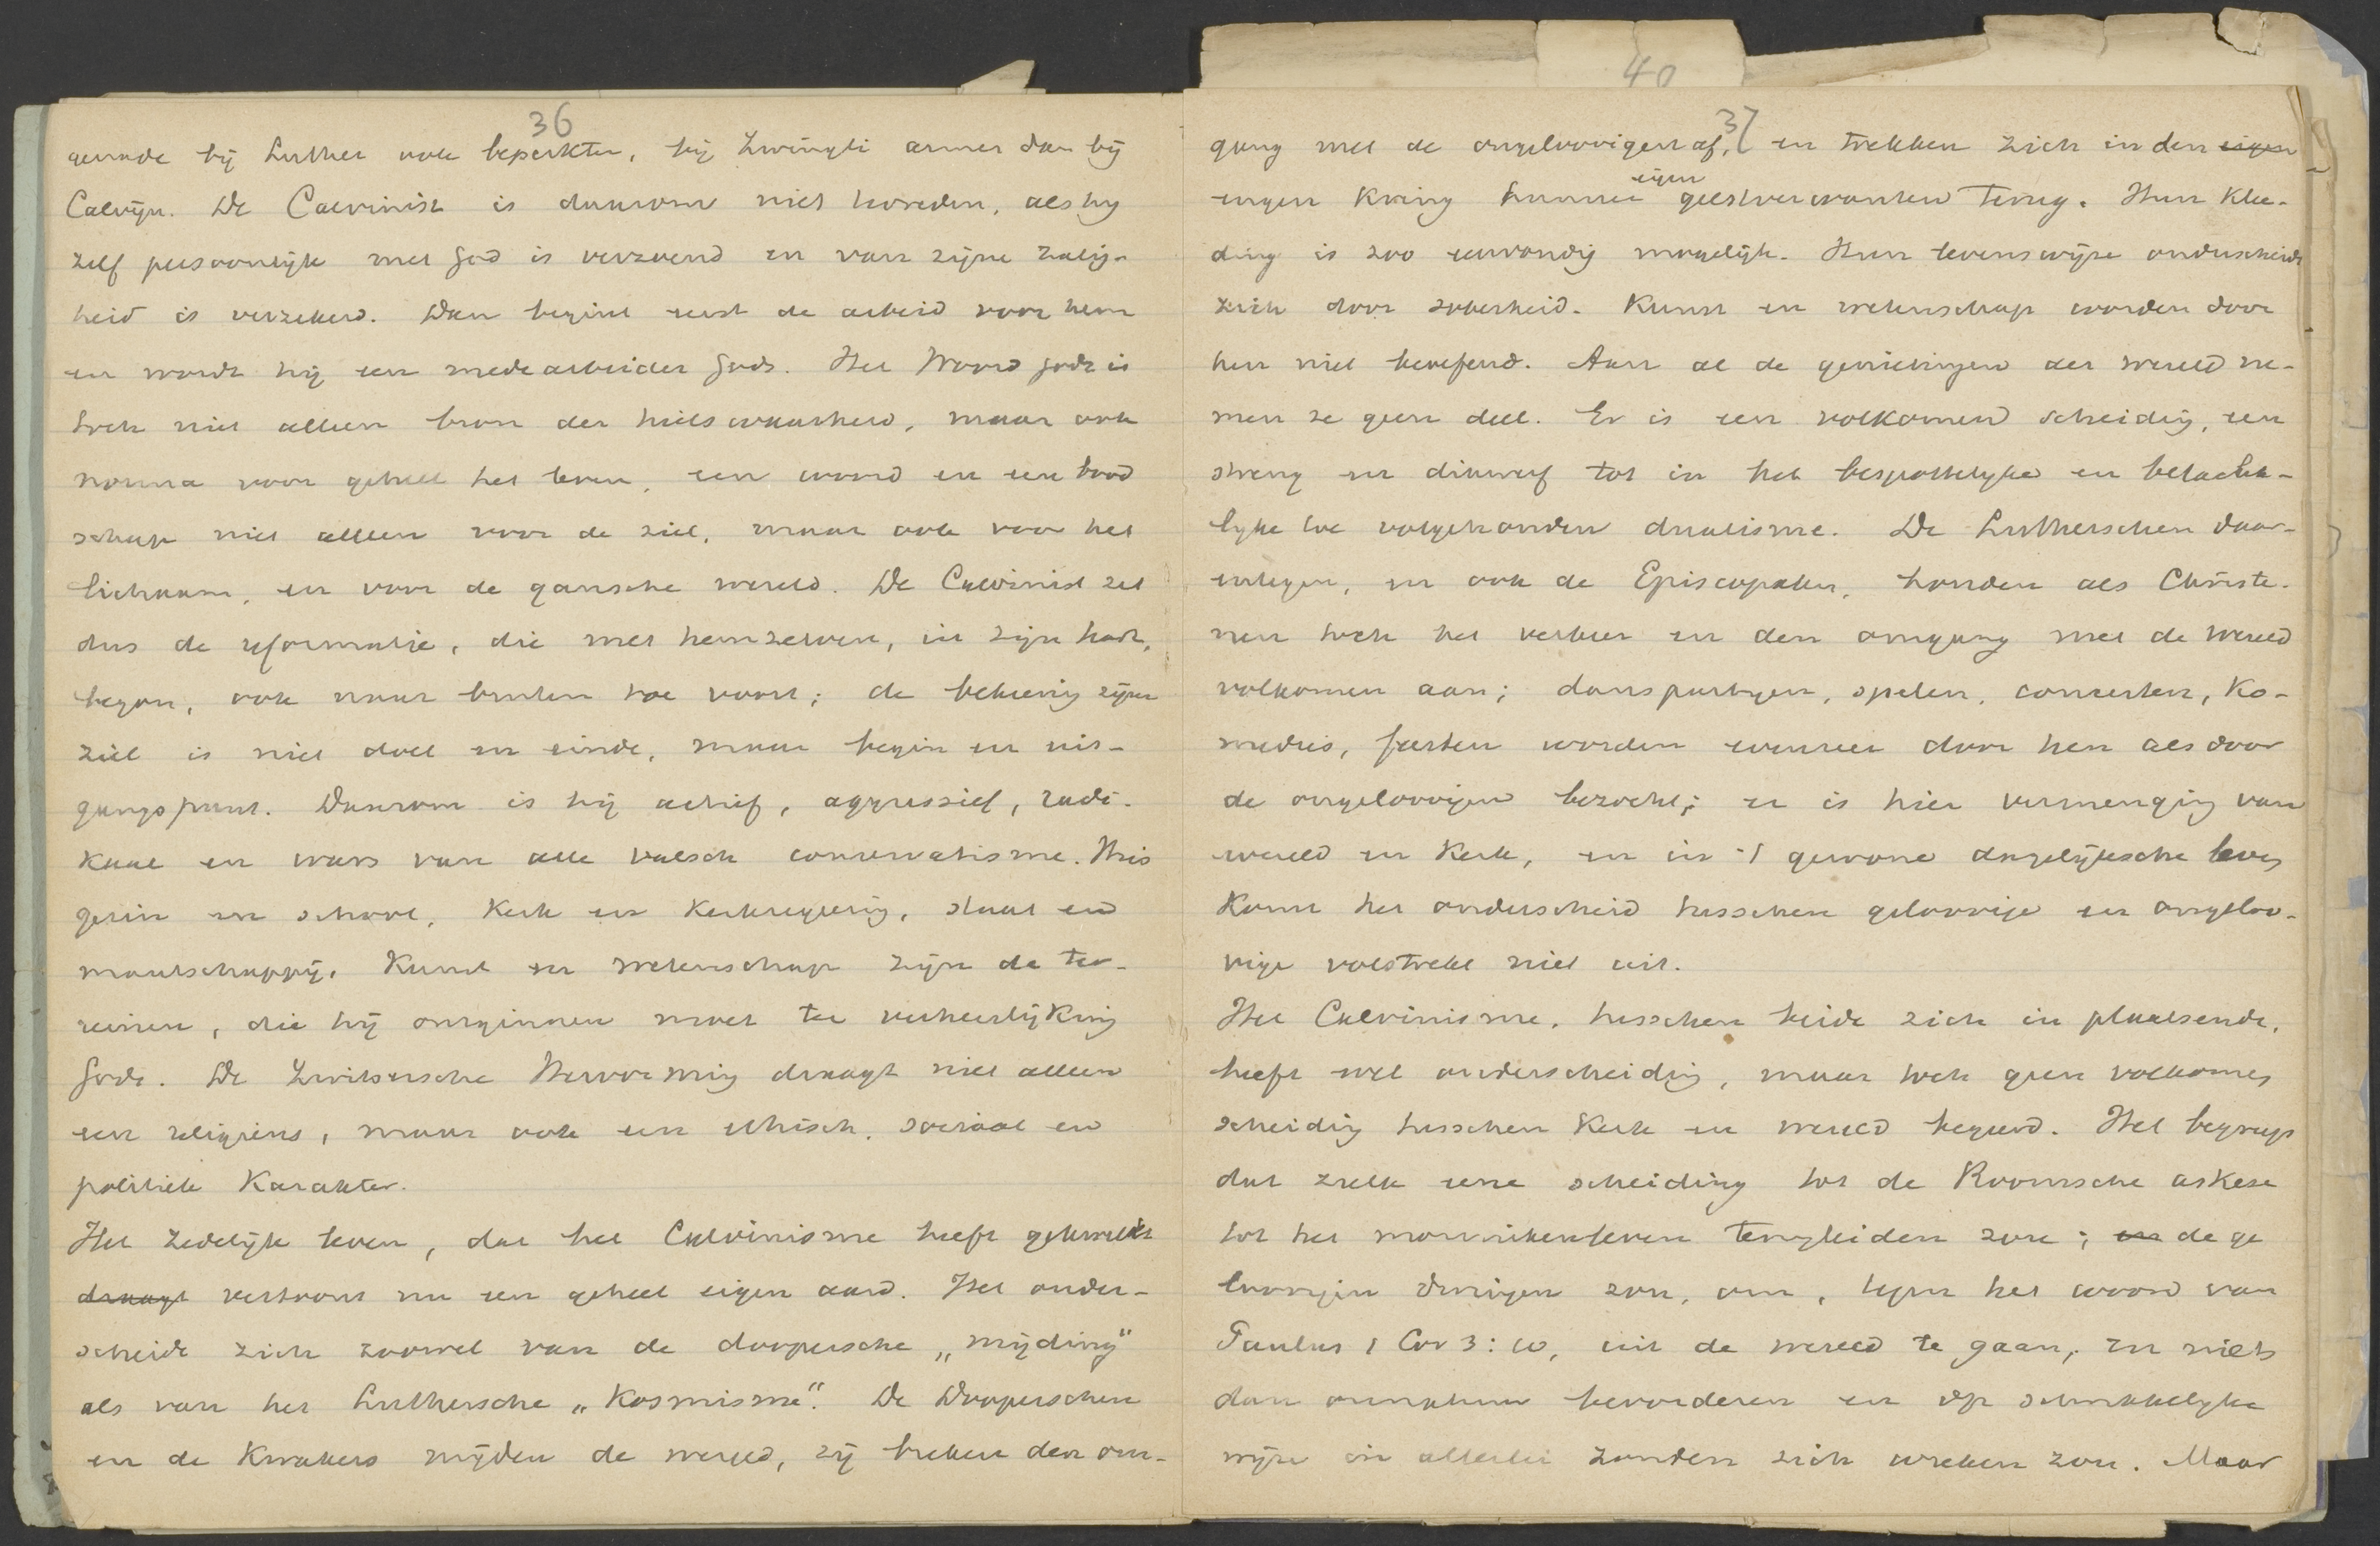 36
genade bij Luther ook beperkter, bij Zwingli armer dan bij
Calvijn. De Calvinist is daarom niet tevreden, als hij
zelf persoonlijk met God is verzoend en van zijne zalig-
heid is verzekerd. Dan begint eerst de arbeid voor hem
en wordt hij een medearbeider Gods. Het Woord Gods is
toch niet alleen bron der heilswaarheid, maar ook
norma voor geheel het leven, een woord en een bood
schap niet alleen voor de ziel, maar ook voor het
lichaam, en voor de gansche wereld. De Calvinist zet
dus de reformatie, die met hemzelven, in zijn hart,
begon, ook naar buiten toe voort; de bekeering zijner
ziel is niet doel en einde, maar begin en uit-
gangspunt. Daarom is hij actief, aggressief, radi-
kaal en wars van alle valsch conservatisme. Huis
gezin en school, Kerk en Kerkregeering, staat en
maatschappij, Kunst en wetenschap zijn de ter-
reinen, die hij ontginnen moet ter verheerlijking
Gods. De Zwitsersche Hervorming draagt niet alleen
een religieus, maar ook een ethisch, sociaal en
politiek Karakter.
Het zedelijk leven, dat het Calvinisme heeft gekweekt
draagt vertoont nu een geheel eigen aard. Het onder-
scheidt zich zoowel van de doopersche „mijding"
als van het Luthersche „Kosmisme". De Dooperschen
en de Kwakers mijden de wereld, zij breken den om-
40
37
gang met de ongeloovigen af, en trekken zich in den eigen
engen Kring hunner eigen geestverwanten terug. Hun Klee-
ding is zoo eenvoudig mogelijk. Hun levenswijze onderscheidt
zich door soberheid. Kunst en wetenschap worden door
hen niet beoefend. Aan al de genietingen der wereld ne-
men ze geen deel. Er is een volkomen scheiding, een
streng en dikwerf tot in het bespottelijke en belache-
lijke toe volgehouden dualisme. De Lutherschen daar-
entegen, en ook de Episcopalen, houden als Christe-
nen toch het verkeer en den omgang met de wereld
volkomen aan; danspartijen, spelen, concerten, Ko-
medies, feesten worden evenzeer door hen als door
de ongeloovigen bezocht; er is hier vermenging van
wereld en Kerk, en in 't gewone dagelijksche leven
Komt het onderscheid tusschen geloovige en ongeloo-
vige volstrekt niet uit.
Het Calvinisme, tusschen beide zich in plaatsende,
heeft wel onderscheiding, maar toch geen volkomen
scheiding tusschen Kerk en wereld begeerd. Het begreep
dat zulk eene scheiding tot de Roomsche askese
tot het monnikenleven terugleiden zou; en de ge
loovigen dwingen zou, om, tegen het woord van
Paulus 1 Cor 3:10, uit de wereld te gaan, en niets
dan onnatuur bevorderen en op schrikkelijke
wijze in allerlei zonden zich wreken zou. Maar